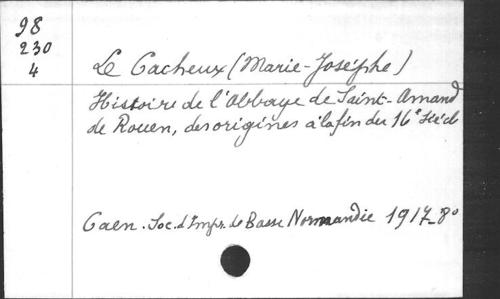 98
230
4
Le Cacheux (Marie-Josèphe)
Histoire de l'Abbaye de Saint-Amand
de Rouen, des origines à la fin du 16e Siècle
Caen. Soc. d'Impr. de Basse Normandie 1917_8o